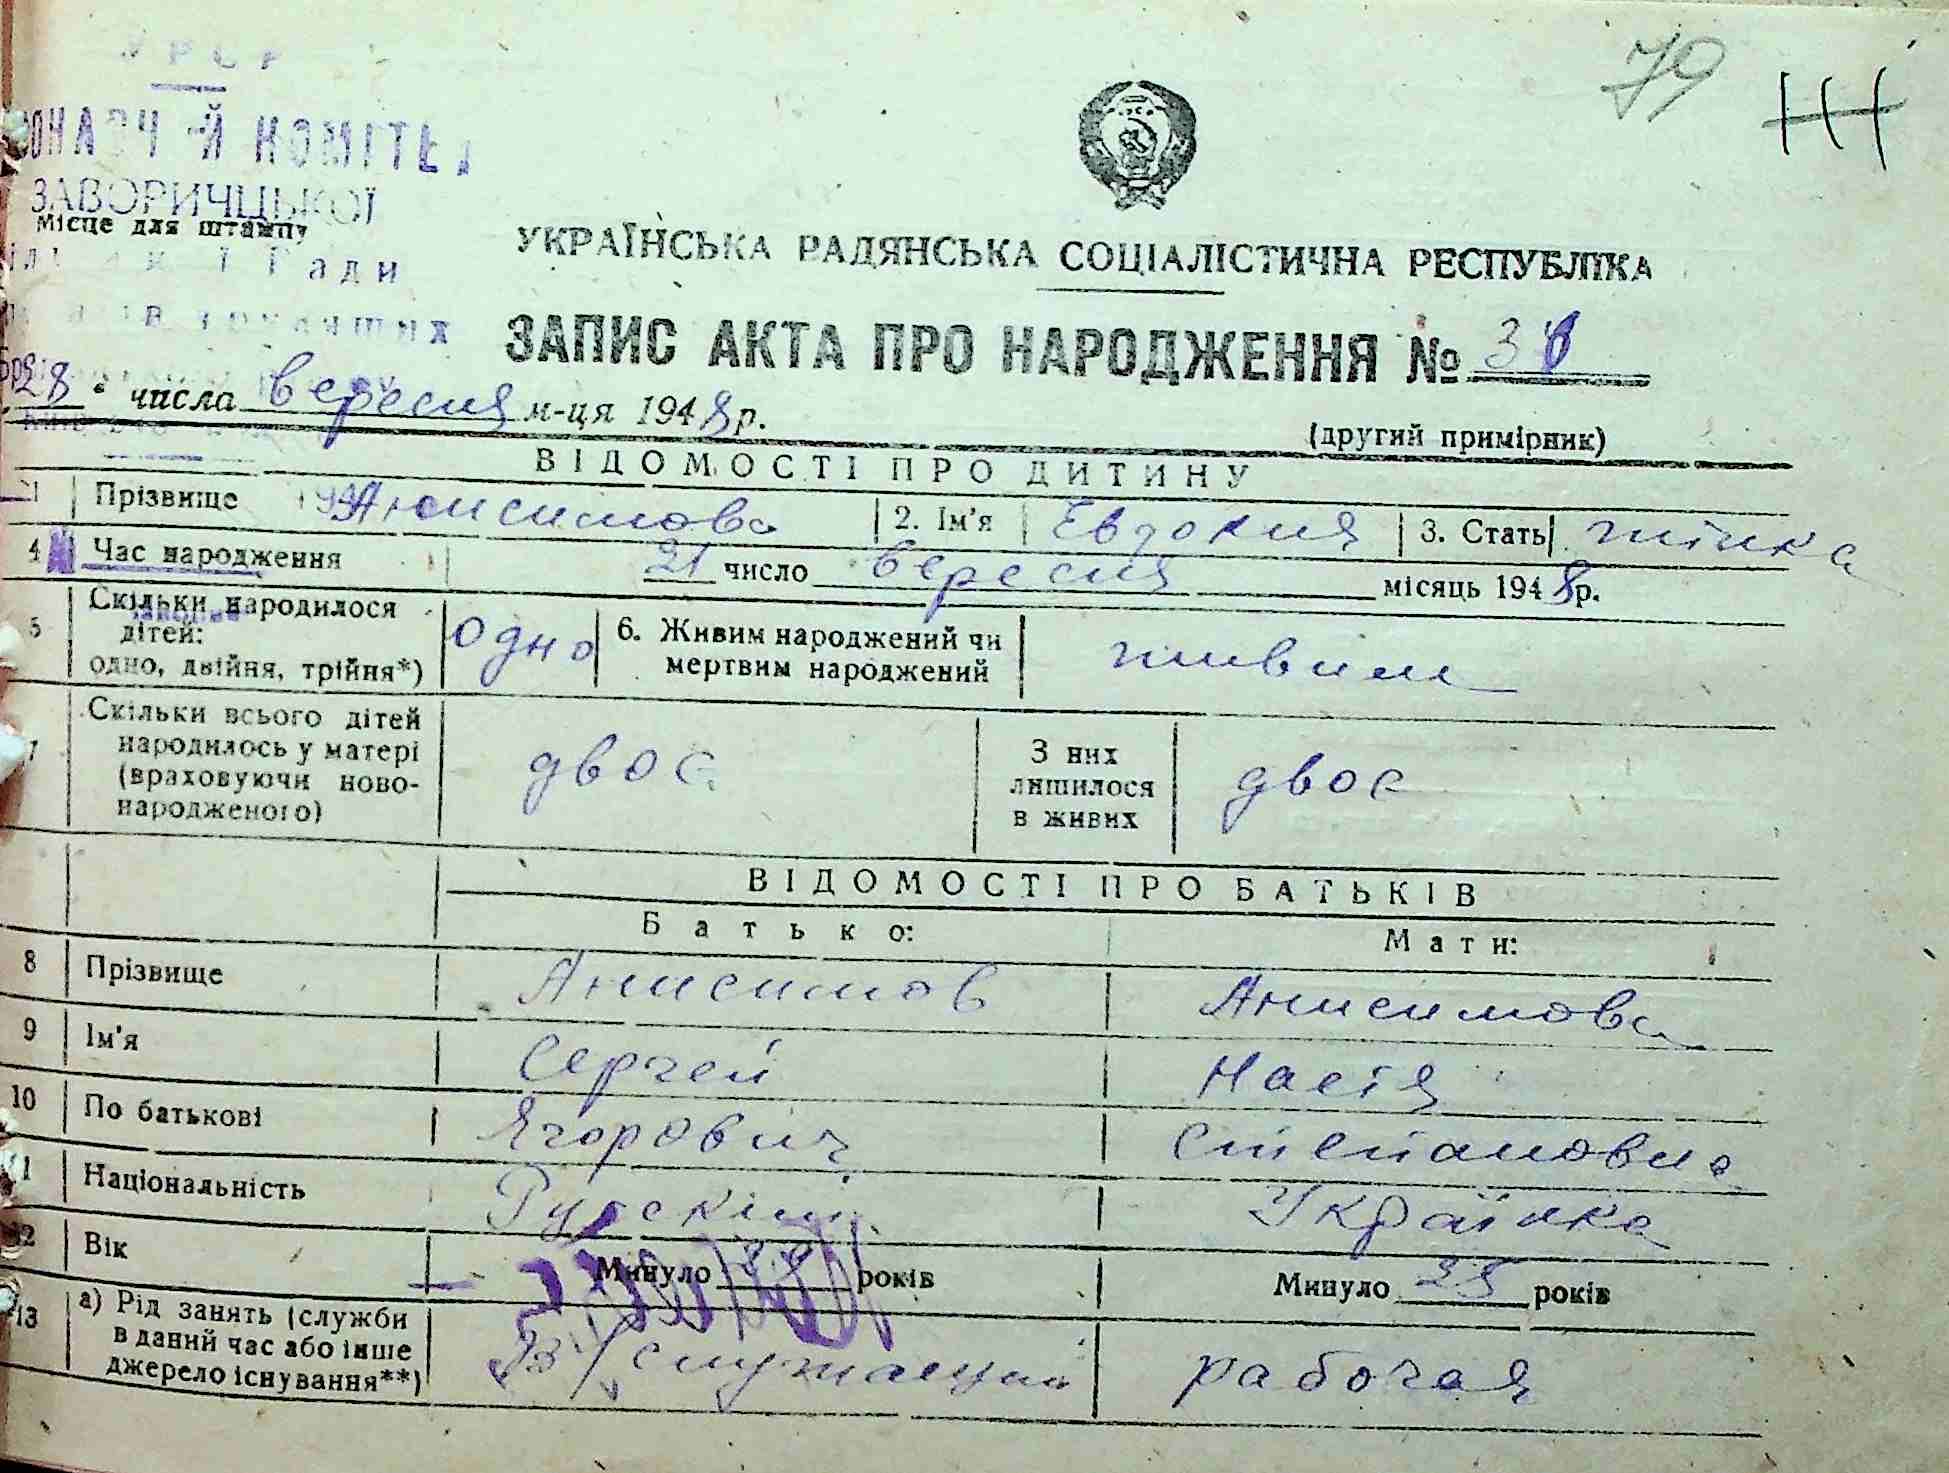 79
УРСР
КОМІТЕТ
ЗАВОРИЧЦЬКОЇ
Місце для штампу
Ради
трудящих
УКРАЇНСЬКА РАДЯНСЬКА СОЦІАЛІСТИЧНА РЕСПУБЛІКА
ЗАПИС АКТА ПРО НАРОДЖЕННЯ №
28 числа вересня м-ця 1948 р.
(другий примірник)
ВІДОМОСТІ ПРО ДИТИНУ
1 Прізвище Анисимова 2. Ім'я Евдокия 3. Стать жінка
4 Час народження 21 число вересня місяць 1948 р.
5 Скільки народилося дітей: одно, двійня, трійня*) одно 6. Живим народжений чи мертвим народжений живим
7 Скільки всього дітей народилось у матері (враховуючи новонародженого) двос З них лишилося в живих двос
ВІДОМОСТІ ПРО БАТЬКІВ
Батько: Мати:
8 Прізвище Анисимов Анисимова
9 Ім'я Сергей Настя
10 По батькові Ягорович Степановна
11 Національність Русский Українка
12 Вік Минуло років Минуло років
13 а) Рід занять (служби в даний час або інше джерело існування**) служащий рабочая